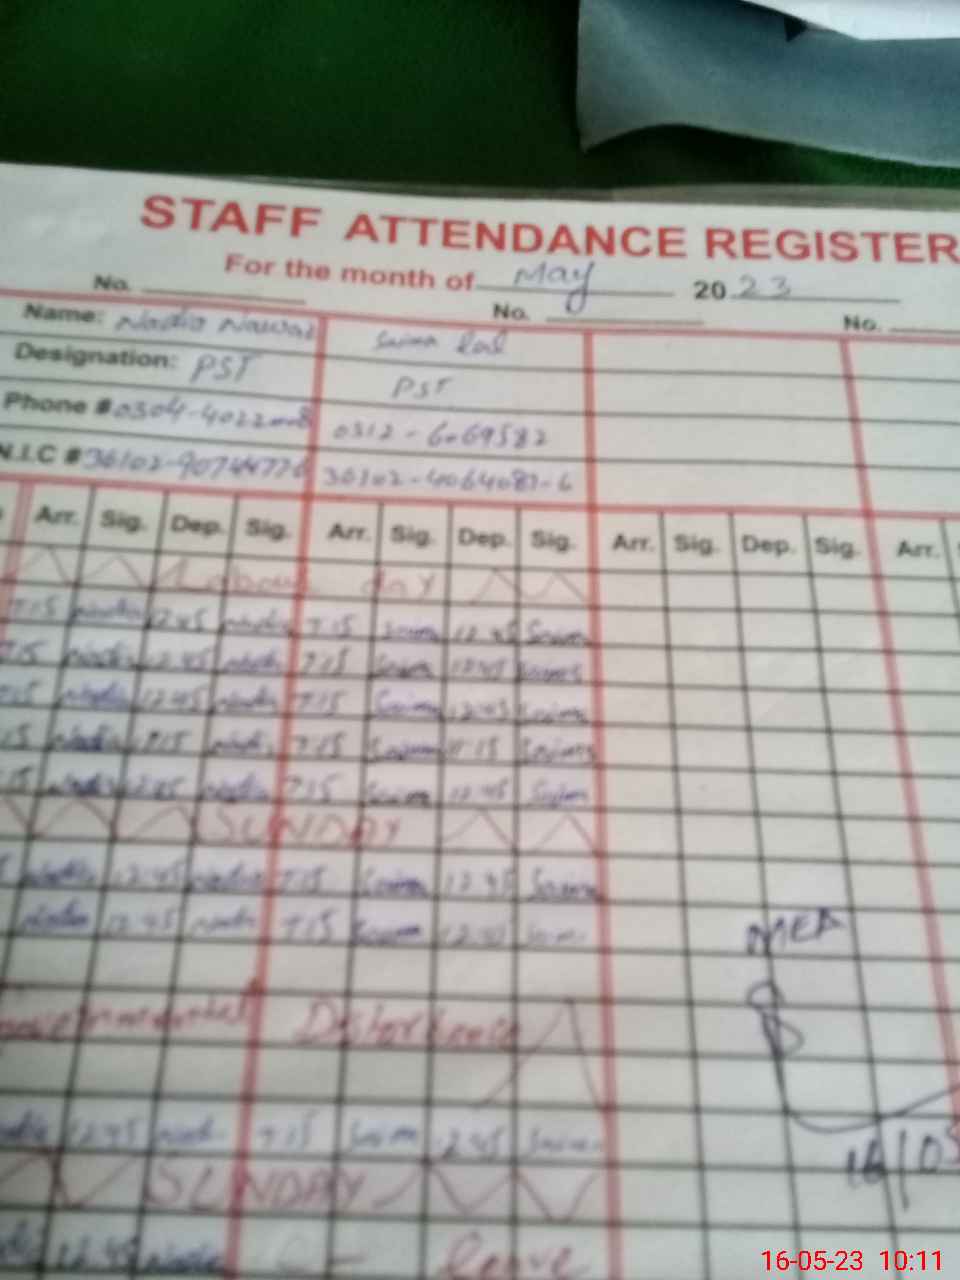 STAFF ATTENDANCE REGISTER
For the month of May 2023
No. No. No.
Name: Nadia Nawaz Saima
Designation: PST PST
Phone # 0304-4022 0312-6069582
N.I.C # 36102-90744776 36102-4064087-6
Arr. Sig. Dep. Sig. Arr. Sig. Dep. Sig. Arr. Sig. Dep. Sig. Arr.
Labour day
7:15 Nadia 12:45 Nadia 7:15 Saima 12:45 Saima
7:15 Nadia 12:45 Nadia 7:15 Saima 12:45 Saima
7:15 Nadia 12:45 Nadia 7:15 Saima 12:45 Saima
15 Nadia 11:15 Nadia 7:15 Saima 11:15 Saima
15 Nadia 12:45 Nadia 7:15 Saima 12:45 Saima
SUNDAY
Nadia 12:45 Nadia 7:15 Saima 12:45 Saima
Nadia 12:45 Nadia 7:15 Saima 12:45
MEA
12:45 7:15 Saim 12:45
16/05
SUNDAY
12:45 Nadia leave
16-05-23 10:11